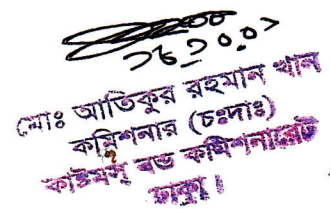 মোঃ আতিকুর রহমান খান
কমিশনার (চঃদাঃ)
কাস্টমস্ বন্ড কমিশনারেট
ঢাকা।